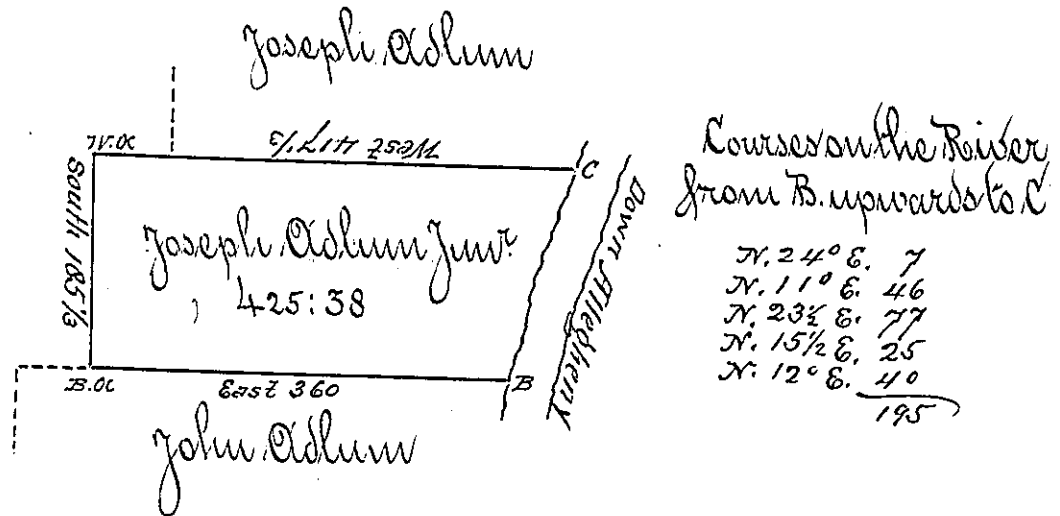 Joseph Adlum
W.O.
West 417 1/3
C
South 185 1/3
Joseph Adlum Junr.
425:38
Down Allegheny
B.O.
East 360
B
John Adlum
Courses on the River
from B. upwards to C
N. 24° E. 7
N. 11° E. 46
N. 23½ E. 77
N. 15½ E. 25
N. 12° E. 40
195